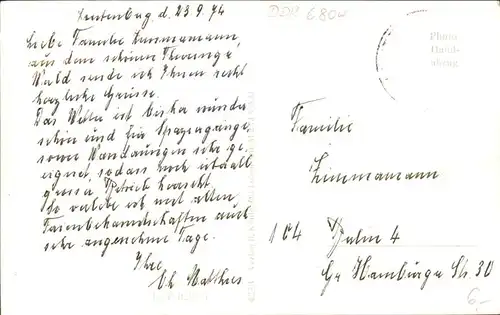 Leutenberg d. 23.9.74
Liebe Familie Zimmermann,
aus dem schönen Thüringer
Wald sende ich Ihnen recht
herzliche Grüsse.
Das Wetter ist bisher wunder
schön und für Spaziergänge
sowie Wanderungen sehr ge
eignet, sodass noch überall
grosser Betrieb herrscht.
So verlebe ich mit alten
Ferienbekanntschaften auch
sehr angenehme Tage.
Ihre
Ch. Matthes
DDR 6804
Photo
Hand-
abzug
Familie
Zimmermann
104 Berlin 4
Gr Hamburger Str. 30
6,-